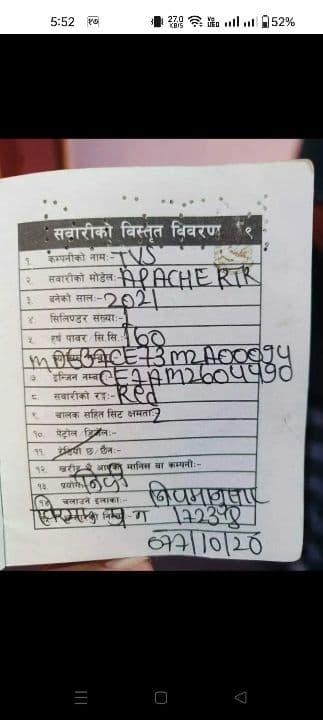 5:52 २७ 27.0 KB/S Vo LTE 52%
सवारीको विस्तृत विवरण ९
१ कम्पनीको नाम:- TVS
२. सवारीको मोडेल:- APACHE RTR
३ बनेको साल:- 2021
४. सिलिण्डर संख्या:- 1
५. हर्ष पावर सि.सि. 160
CE73M2A00094
७. इन्जिन नम्बर CE7AM2604490
८. सवारीको रङ:- Red
९. चालक सहित सिट क्षमता:- 2
१०. पेट्रोल डिजेल:-
११. रेडियो छ/छैन:-
१२. खरीद मानिस वा कम्पनी:-
१३ प्रयोग निजी
१४ चलाउने इलाका:- नियमानुसार
172378
077/10/20